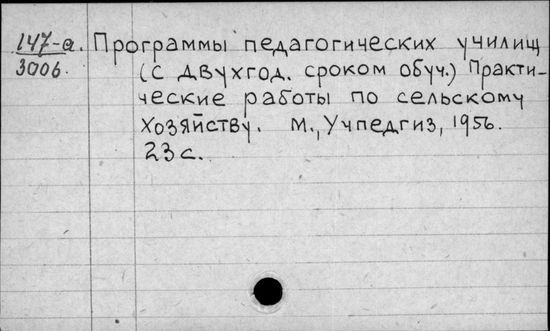 147-а. Программы педагогических училищ
3006. (с двухгод. сроком обуч.) Практи-
ческие работы по сельскому
хозяйству. М., Учпедгиз, 1956.
23 с.